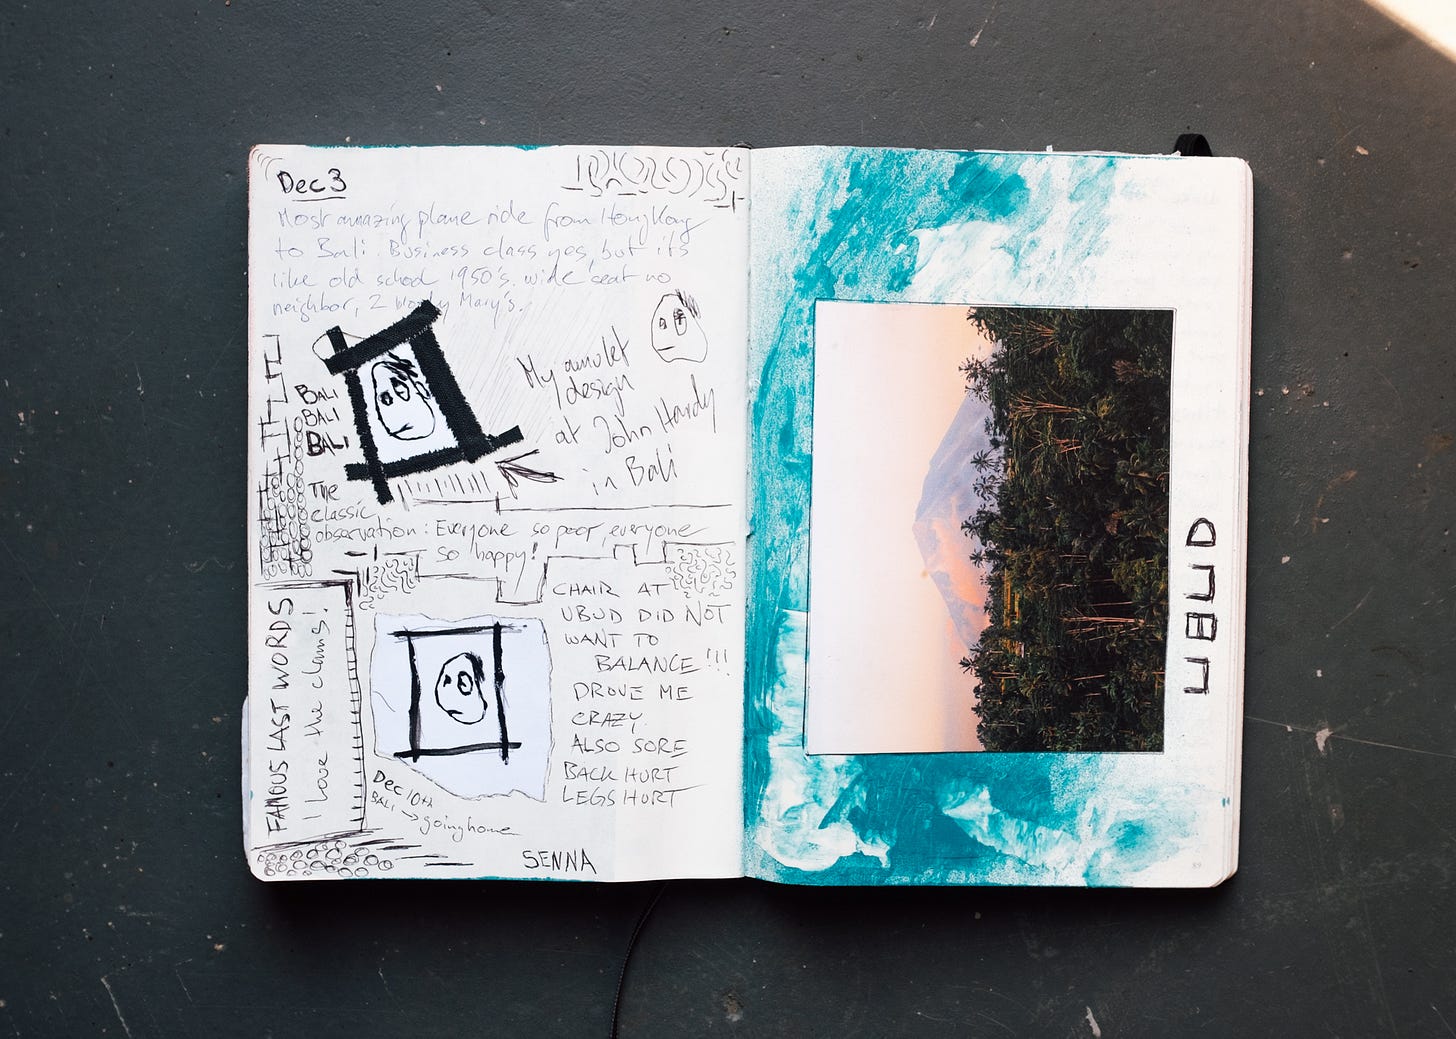 Dec 3
Most amazing plane ride from HongKong
to Bali. Business class yes, but its
like old school 1950's. wide seat no
neighbor, 2 Mary's.
My amulet
design
at John Hardy
in Bali
BALI
BALI
BALI
The
classic
observation: Everyone so poor, everyone
so happy!
FAMOUS LAST WORDS
I love the clams!
CHAIR AT
UBUD DID NOT
WANT TO
BALANCE!!!
DROVE ME
CRAZY.
ALSO SORE
BACK HURT
LEGS HURT
Dec 10th
BALI
going home
SENNA
UBUD
89